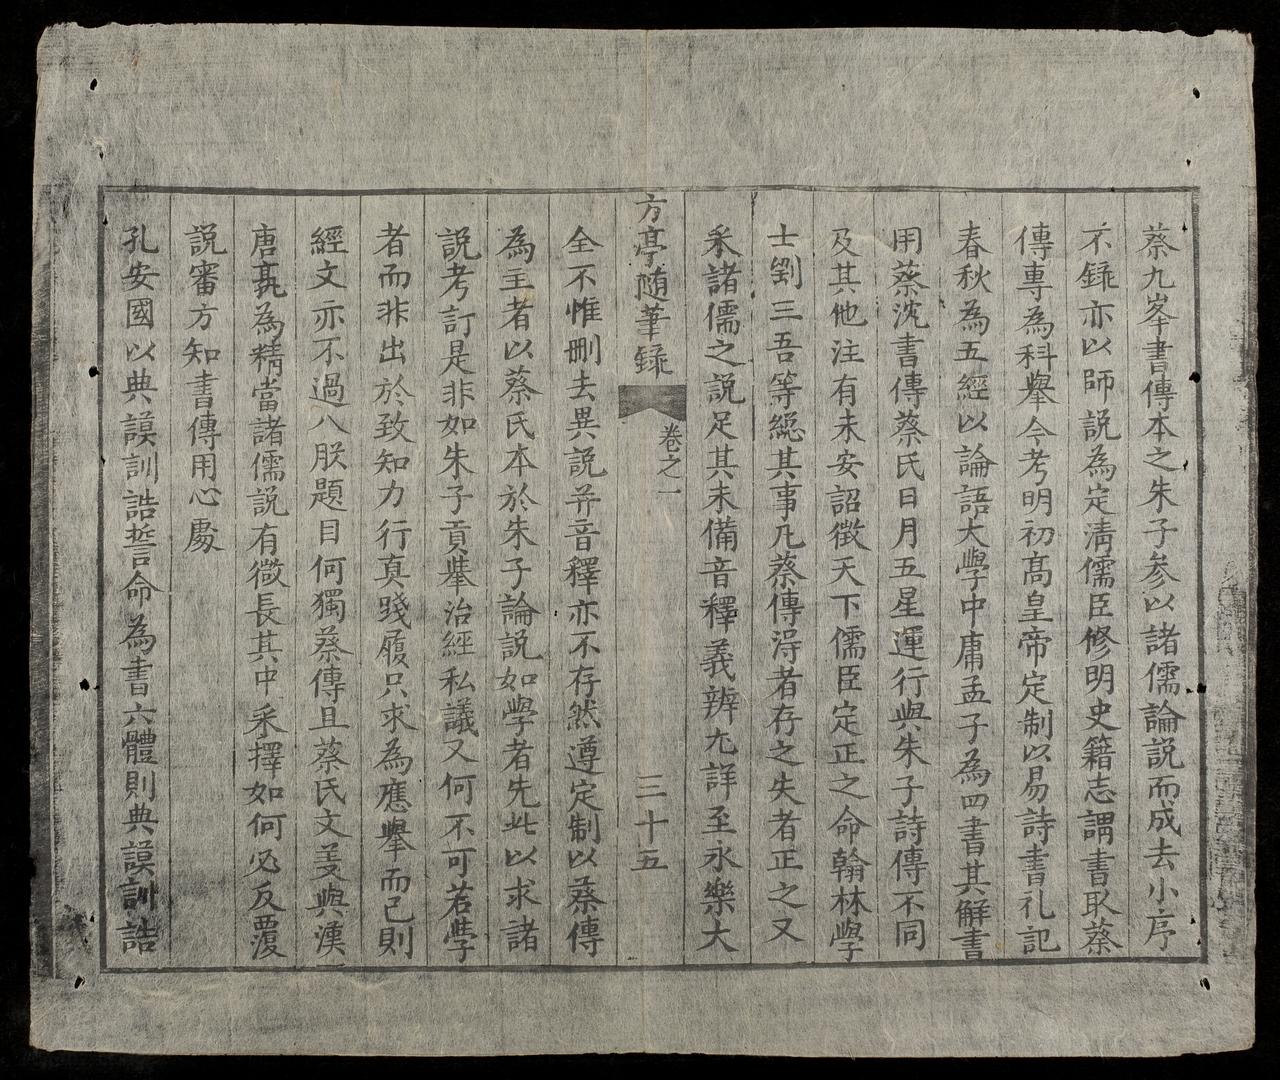 蔡九峯書傳本之朱子参以諸儒論説而成去小序
不錄亦以師説為定清儒臣修明史籍志謂書㕁蔡
傳專為科舉今考明初髙皇帝定制以易詩書礼記
春秋為五經以論語大學中庸孟子為四書其解書
用蔡沈書傳蔡氏日月五星運行與朱子詩傳不同
及其他注有未安詔徵天下儒臣定正之命翰林學
士劉三吾等緫其事凢蔡傳淂者存之失者正之又
釆諸儒之説足其未備音釋義辨尢詳至永樂大
方亭随筆録
卷之一
三十五
全不惟刪去異説并音釋亦不存然遵定制以蔡傳
為主者以蔡氏本於朱子論説如學者先此以求諸
説考訂是非如朱子貢舉治經私議又何不可若學
者而非出於致知力行真踐履只求為應舉而已則
經文亦不過八股題目何獨蔡傳且蔡氏文𦍌與漢
唐孰為精當諸儒説有徵長其中釆擇如何必反覆
説審方知書傳用心處
孔安國以典謨訓誥誓命為書六體則典謨訓誥